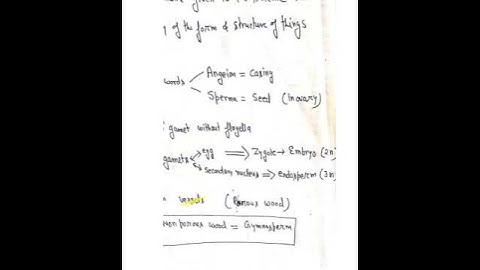 of the form & structure of things
words Angeion = Casing
Sperma = Seed (In ovary)
gamet without flagella
gamets egg ⟹ Zygote → Embryo (2n)
Secondary nucleus ⟹ endosperm (3n)
(Porous wood)
Nonporous wood = Gymnosperm